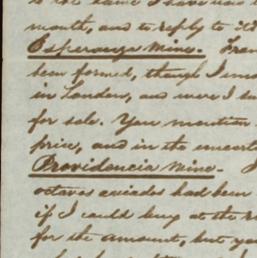 to the same I have now
month, and to reply to it
Esperanza Mine. From
been formed, though I
in London, and were I
for sale. You mention
price, and in the
Providencia Mine.
octavos aviados had been
if I could buy at the
for the amount, but you